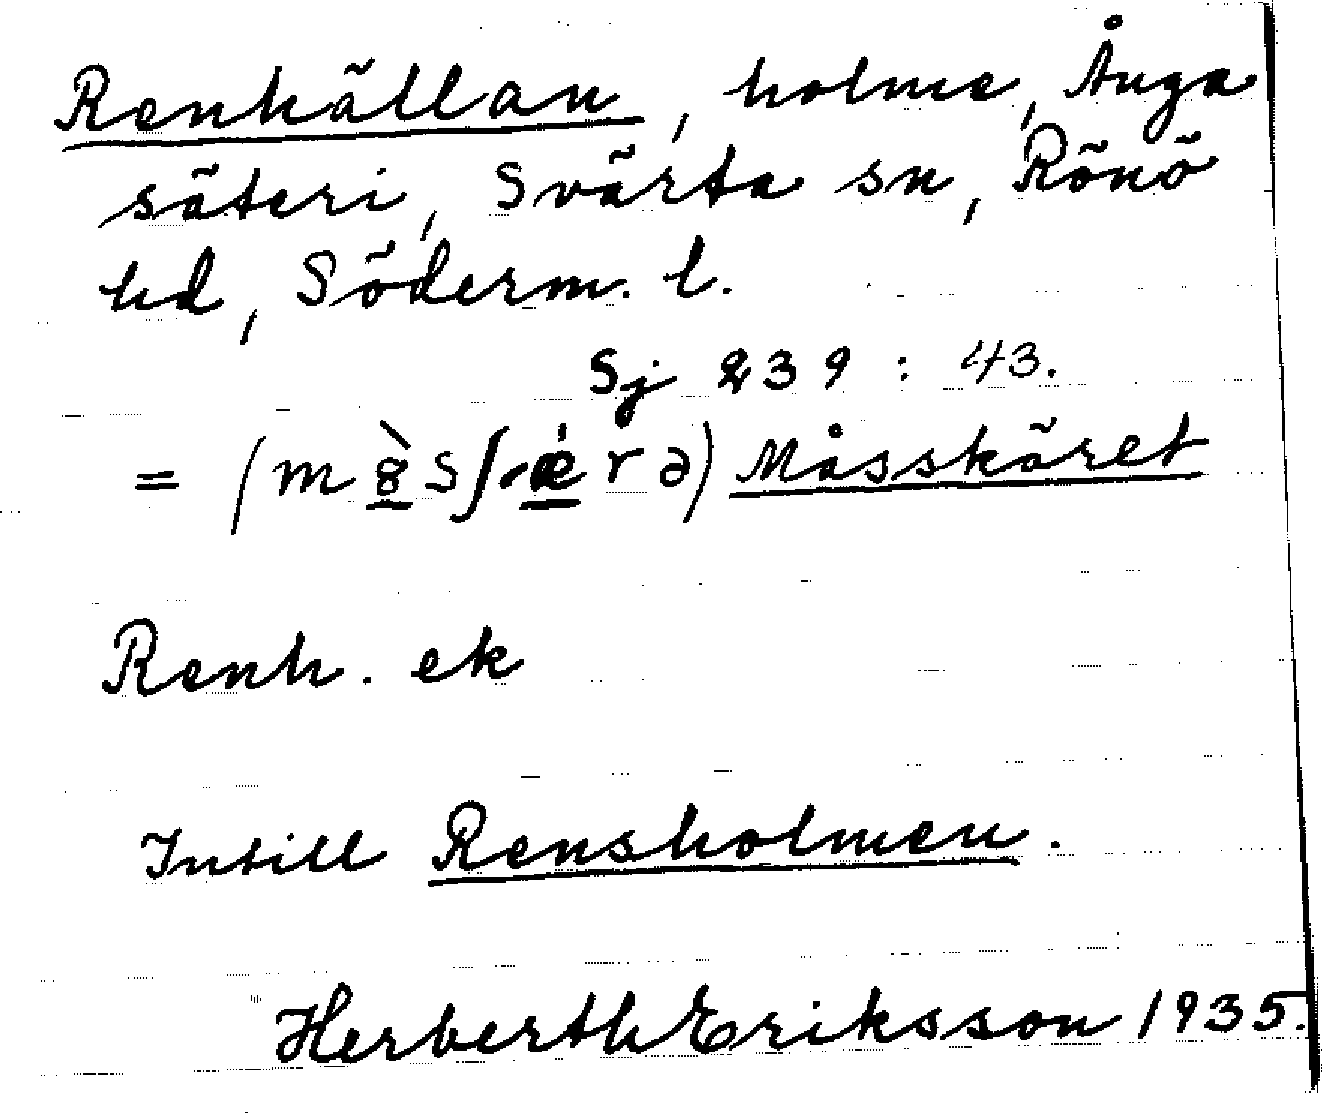 Renhällan, holme, Ånga
säteri, Svärta sn, Rönö
hd, Söderm. l.
Sj 239 : 43.
= ( ) Måsskäret
Renh. ek
Intill Rensholmen.
Herberth Eriksson 1935.